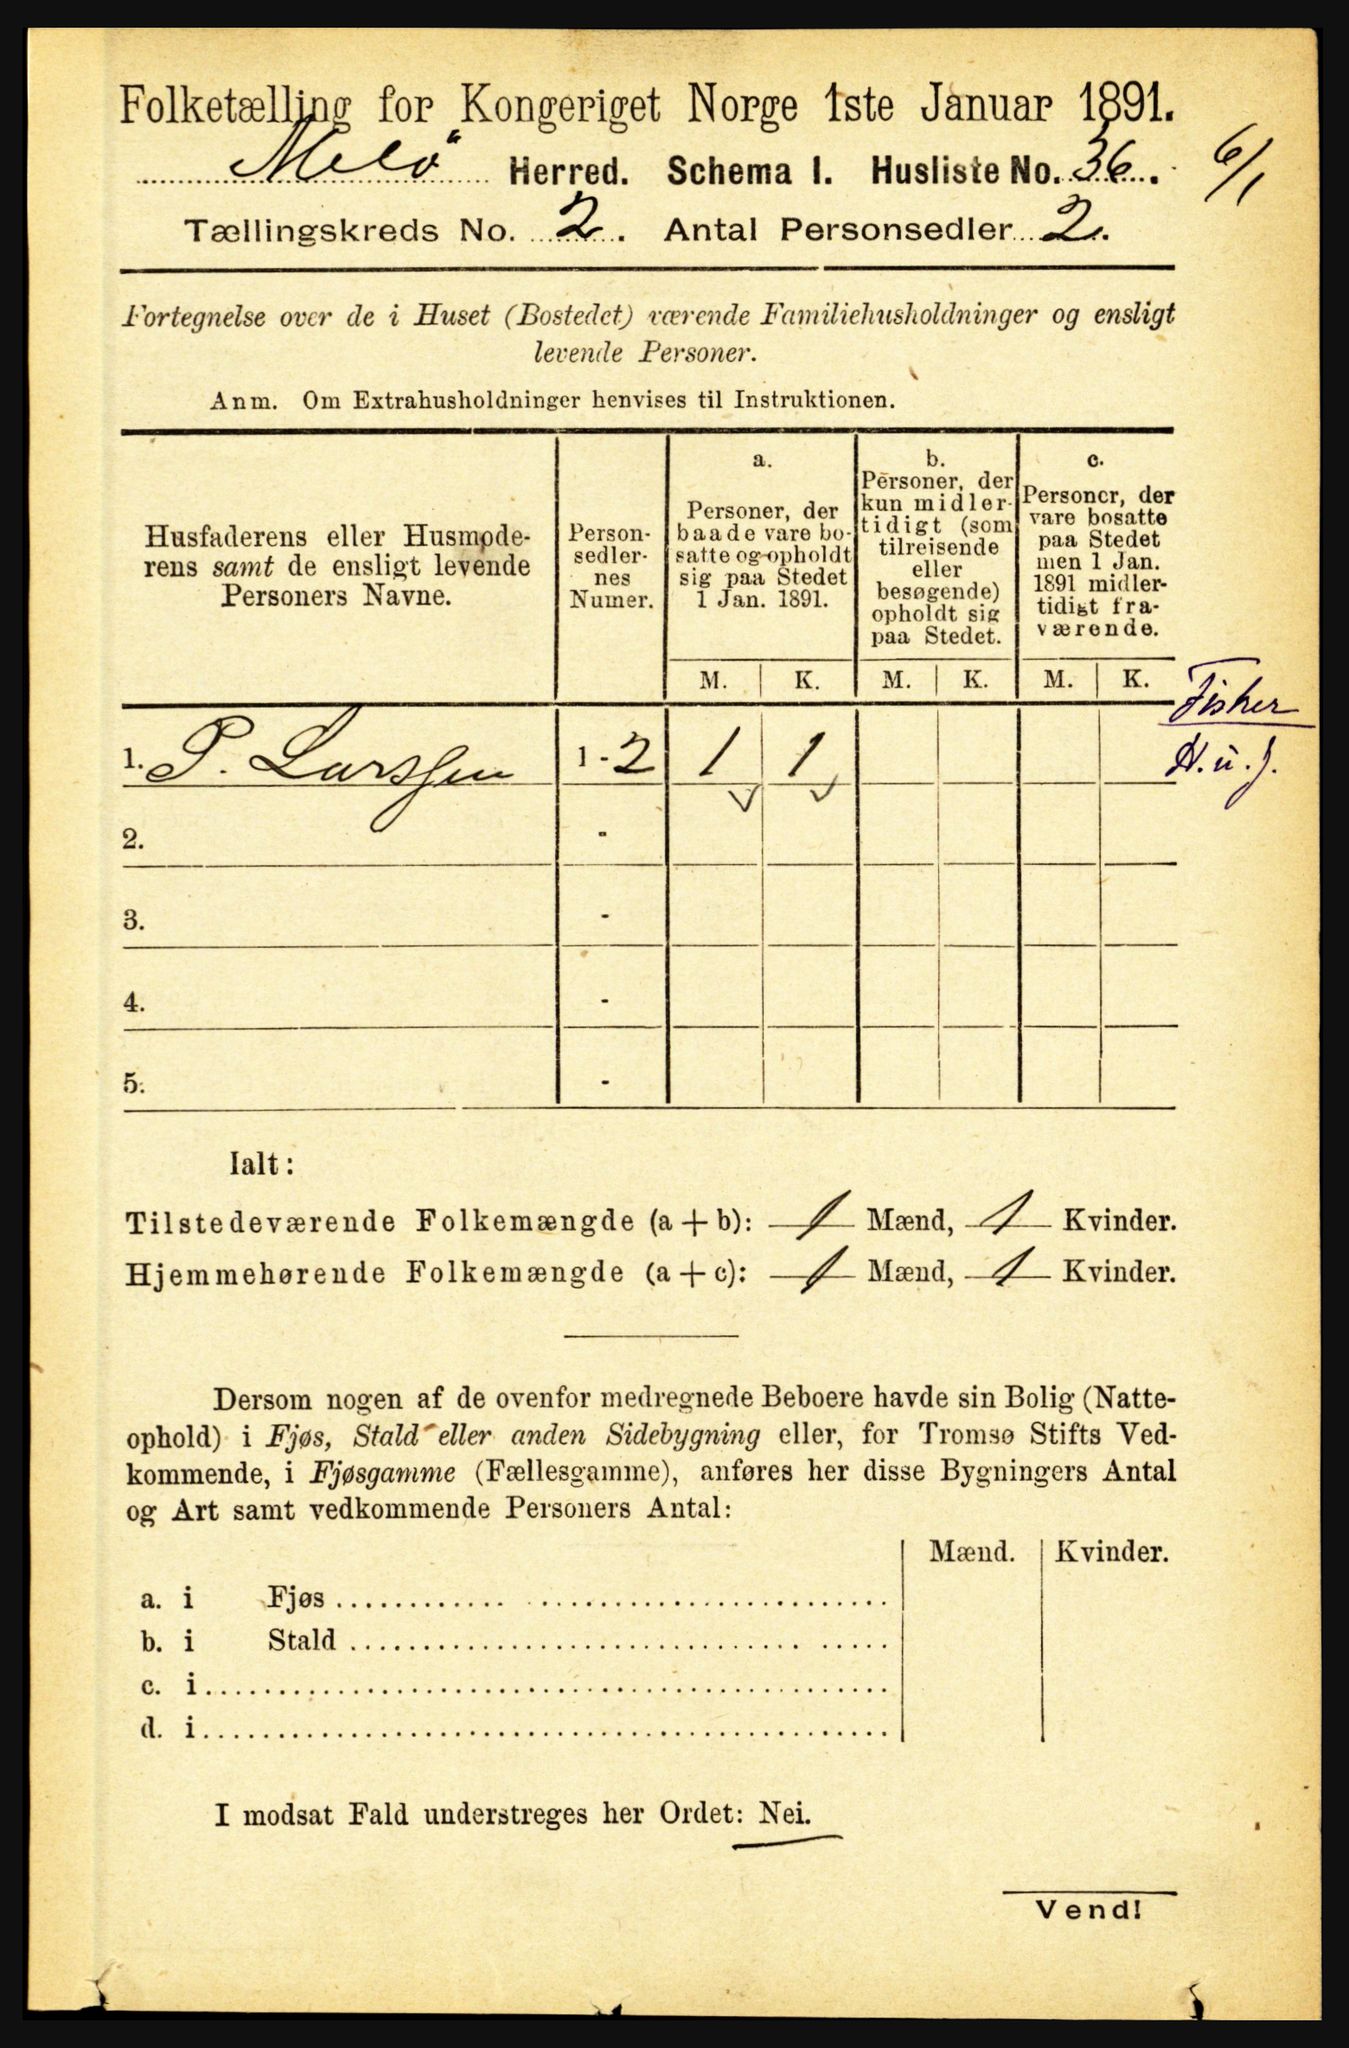 Folketælling for Kongeriget Norge 1ste Januar 1891.
Melö Herred. Schema I. Husliste No. 36. 6/1
Tællingskreds No. 2. Antal Personsedler 2.
Fortegnelse over de i Huset (Bostedet) værende Familiehusholdninger og ensligt
levende Personer.
Anm. Om Extrahusholdninger henvises til Instruktionen.
Husfaderens eller Husmode-
rens samt de ensligt levende
Personers Navne.
Person-
sedler-
nes
Numer.
a.
Personer, der
baade vare bo-
satte og opholdt
sig paa Stedet
1 Jan. 1891.
b.
Personer, der
kun midler-
tidigt (som
tilreisende
eller
besøgende)
opholdt sig
paa Stedet.
c.
Personer, der
vare bosatte
paa Stedet
men 1 Jan.
1891 midler-
tidigt fra-
værende.
M. K. M. K. M. K.
Fisker
1. P. Larssen 1-2 1 1 H. u. J.
2. -
3. -
4. -
5. -
Ialt:
Tilstedeværende Folkemængde (a + b): 1 Mænd, 1 Kvinder.
Hjemmehørende Folkemængde (a + c): 1 Mænd, 1 Kvinder.
Dersom nogen af de ovenfor medregnede Beboere havde sin Bolig (Natte-
ophold) i Fjøs, Stald eller anden Sidebygning eller, for Tromsø Stifts Ved-
kommende, i Fjøsgamme (Fællesgamme), anføres her disse Bygningers Antal
og Art samt vedkommende Personers Antal:
Mænd. Kvinder.
a. i Fjøs
b. i Stald
c. i
d. i
I modsat Fald understreges her Ordet: Nei.
Vend!